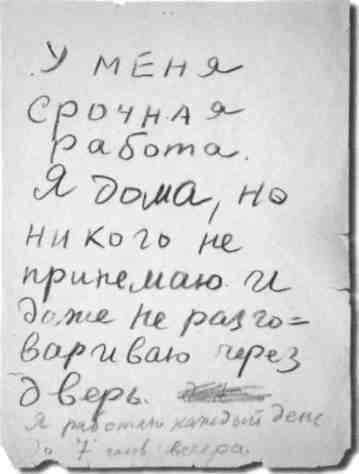 У МЕНЯ
СРОЧНАЯ
работа.
Я дома, но
никого не
принемаю и
даже не разго=
вариваю через
дверь.
Я работаю каждый день
до 7 час. вечера.